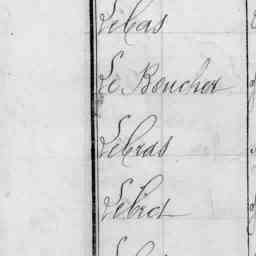 Lebas
Le Boucher
Lebras
Lebret